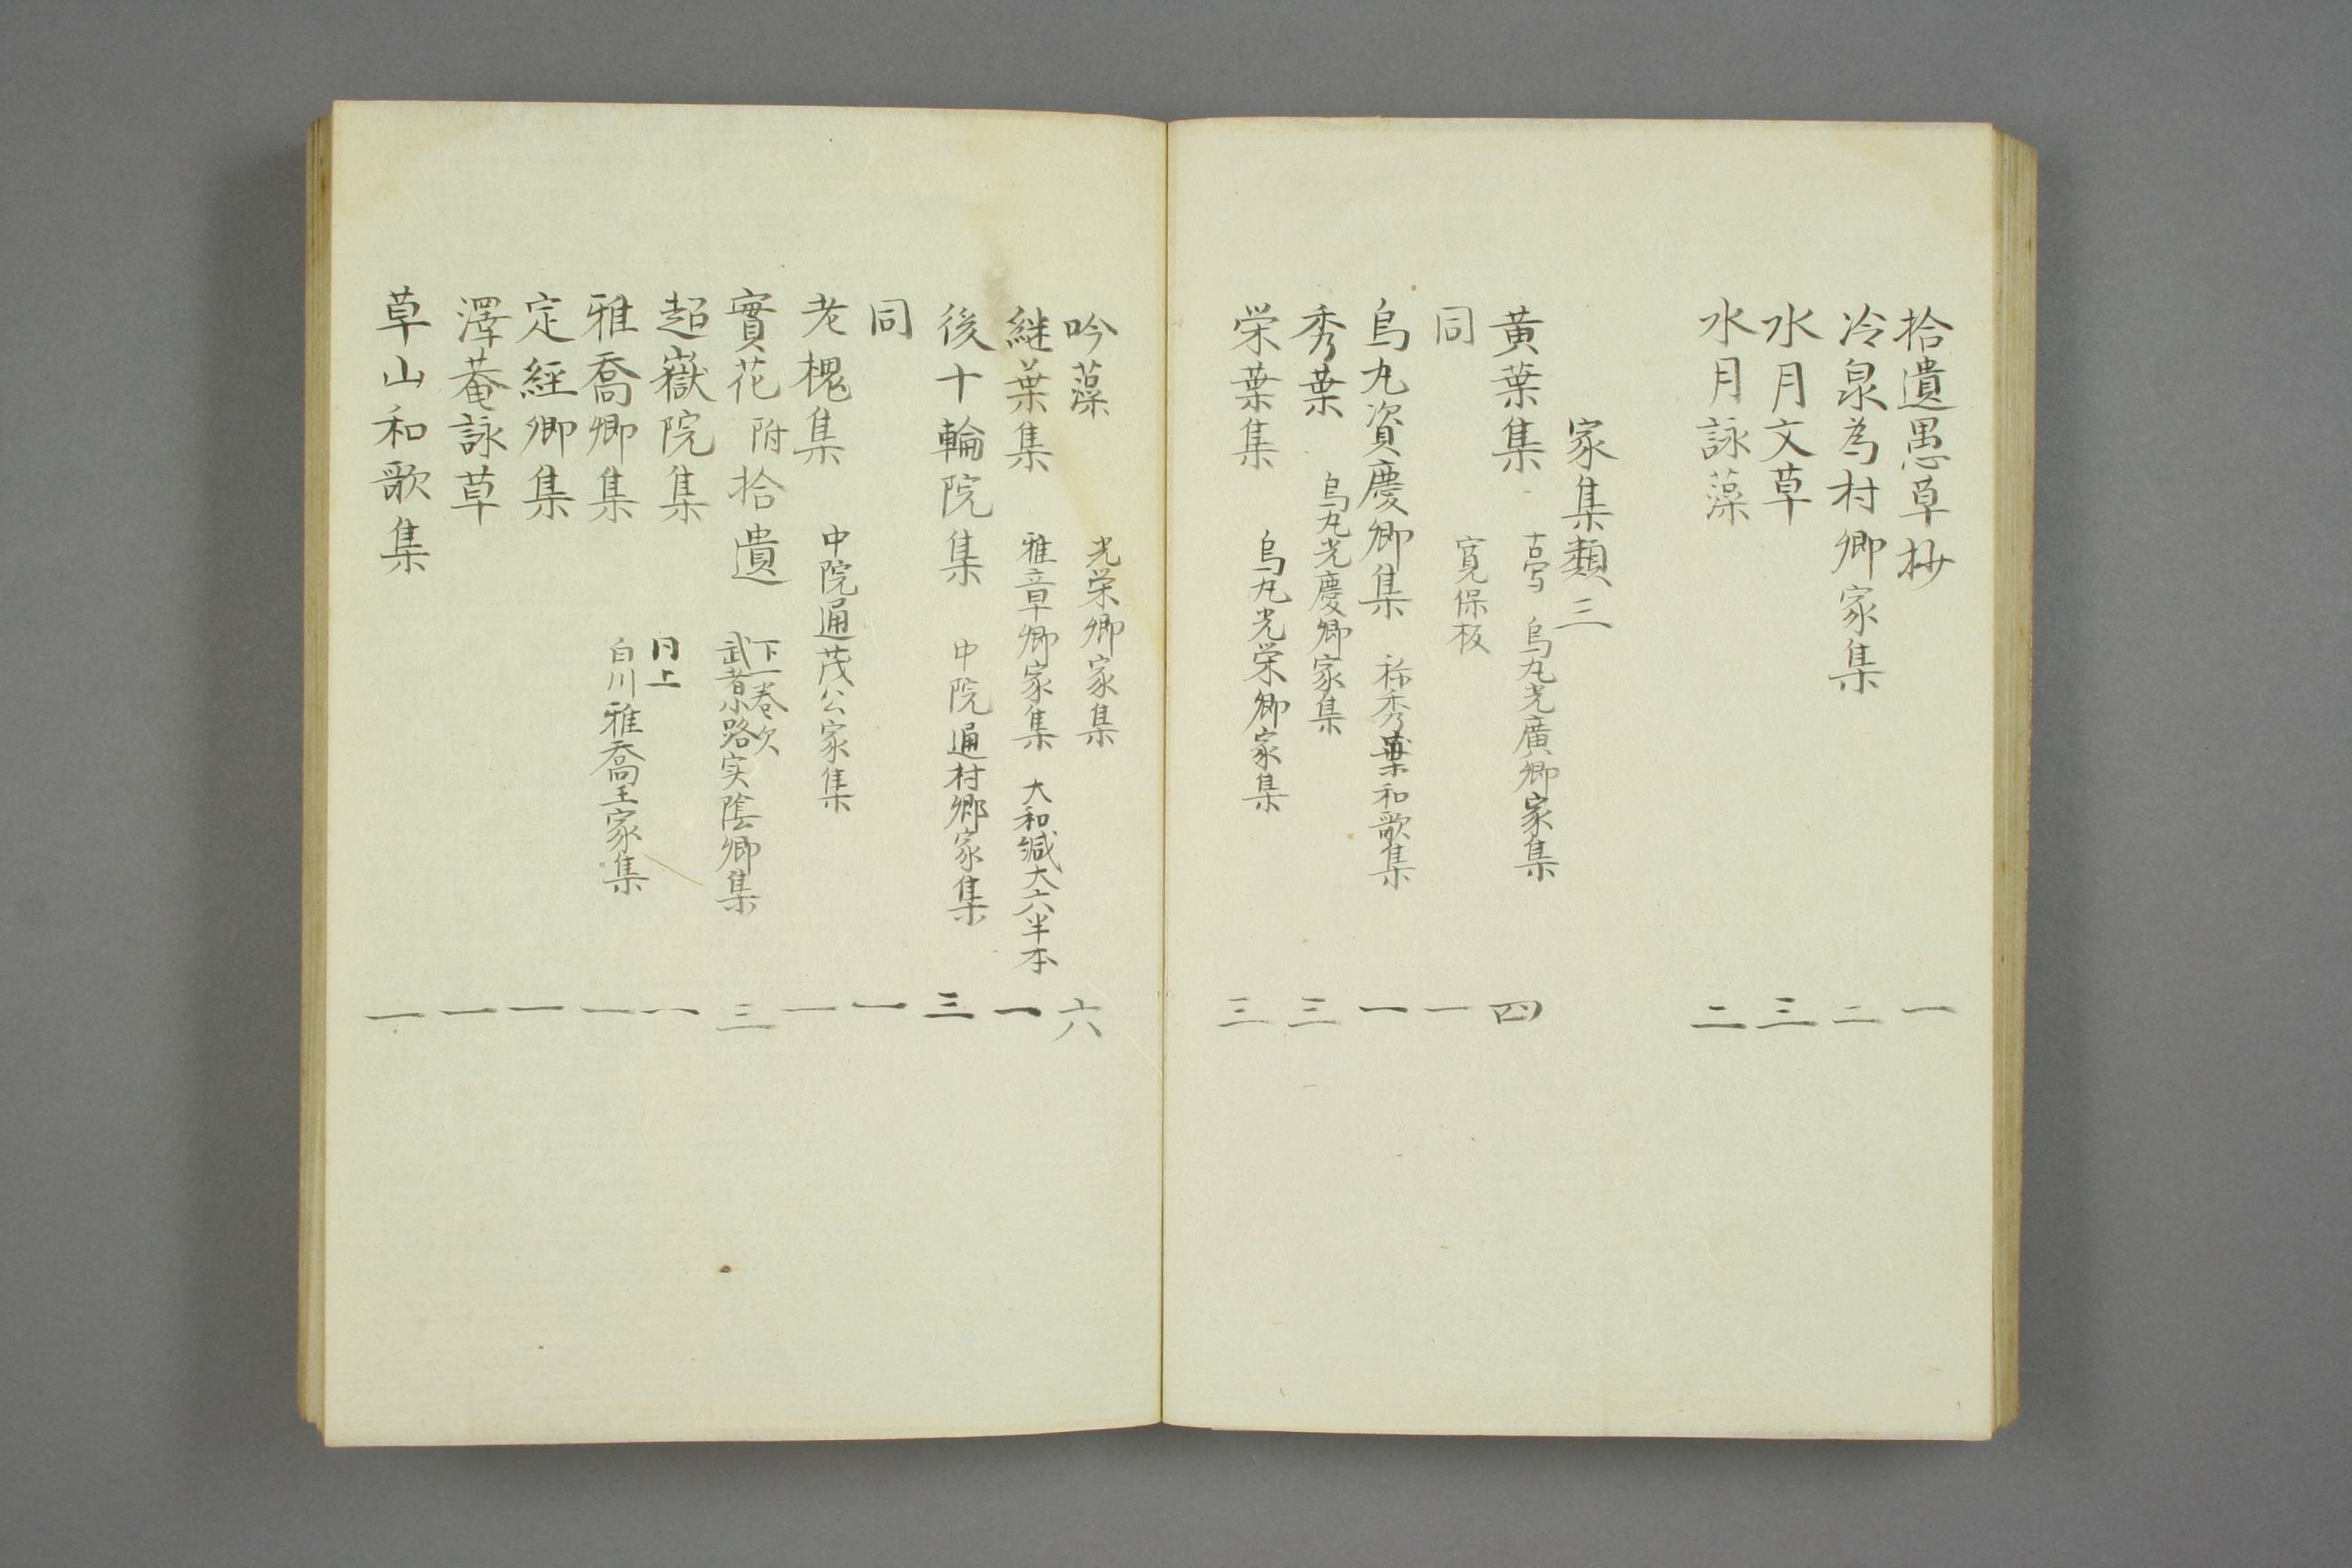 拾遺愚草抄 一
冷泉為村卿家集 二
水月文草 三
水月詠藻 二
家集類三
黄葉集 古写 烏丸光廣卿家集 四
同 寛保板 一
烏丸資慶卿集 称秀葉和歌集 一
秀葉 烏丸光慶卿家集 三
栄葉集 烏丸光栄卿家集 三
吟藻 光栄卿家集 六
継葉集 雅章卿家集 大和綴大六半本 一
後十輪院集 中院通村卿家集 三
同 一
老槐集 中院通茂公家集 一
實花附拾遺 下一巻欠 武者小路实陰卿集 三
超嶽院集 同上 一
雅喬卿集 白川雅喬王家集 一
定經卿集 一
澤菴詠草 一
草山和歌集 一